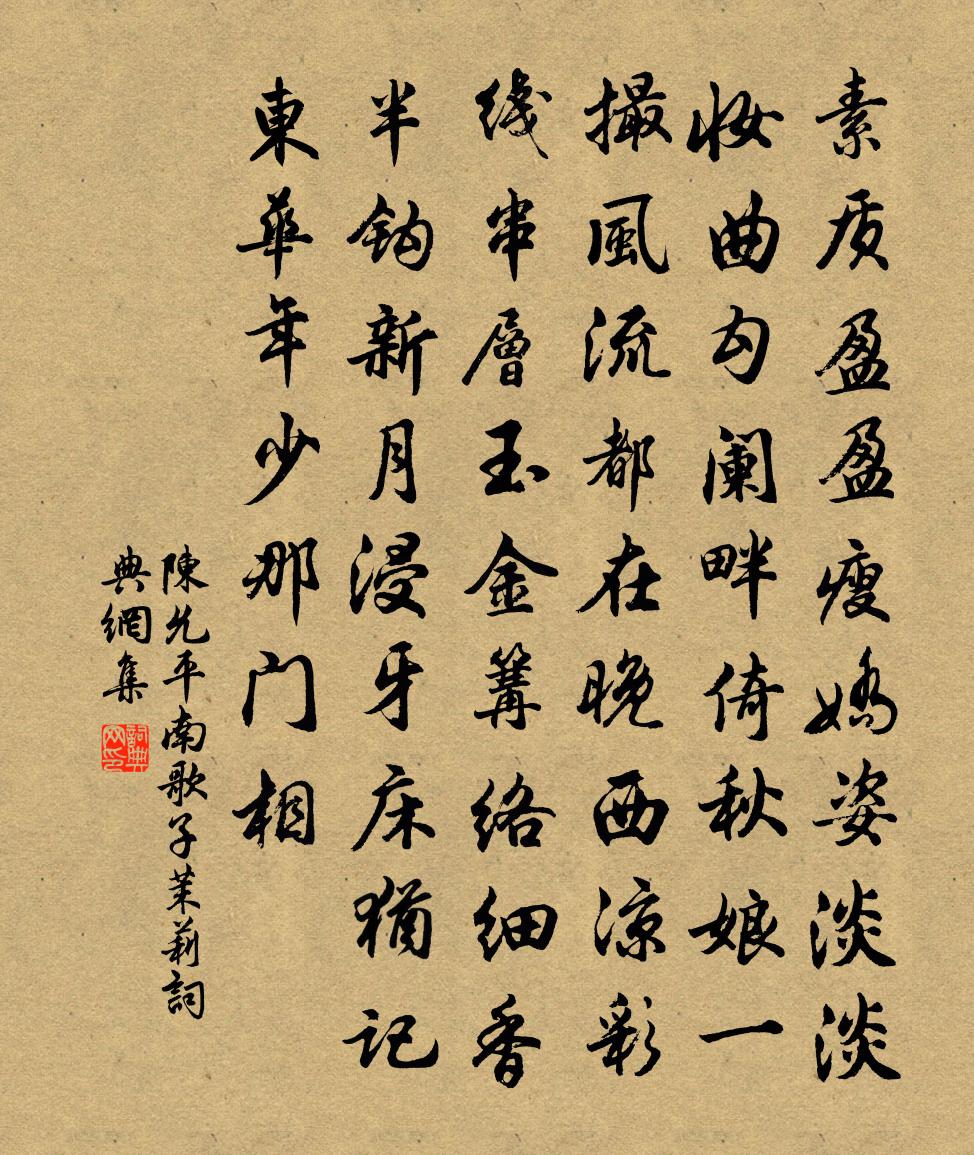 素质盈盈瘦娇姿淡淡
妆曲勾阑畔倚秋娘一
撮風流都在晚西凉彩
线串層玉金篝络细香
半钩新月浸牙床犹记
東華年少那门相
陳允平南歌子茉莉詞
典網集